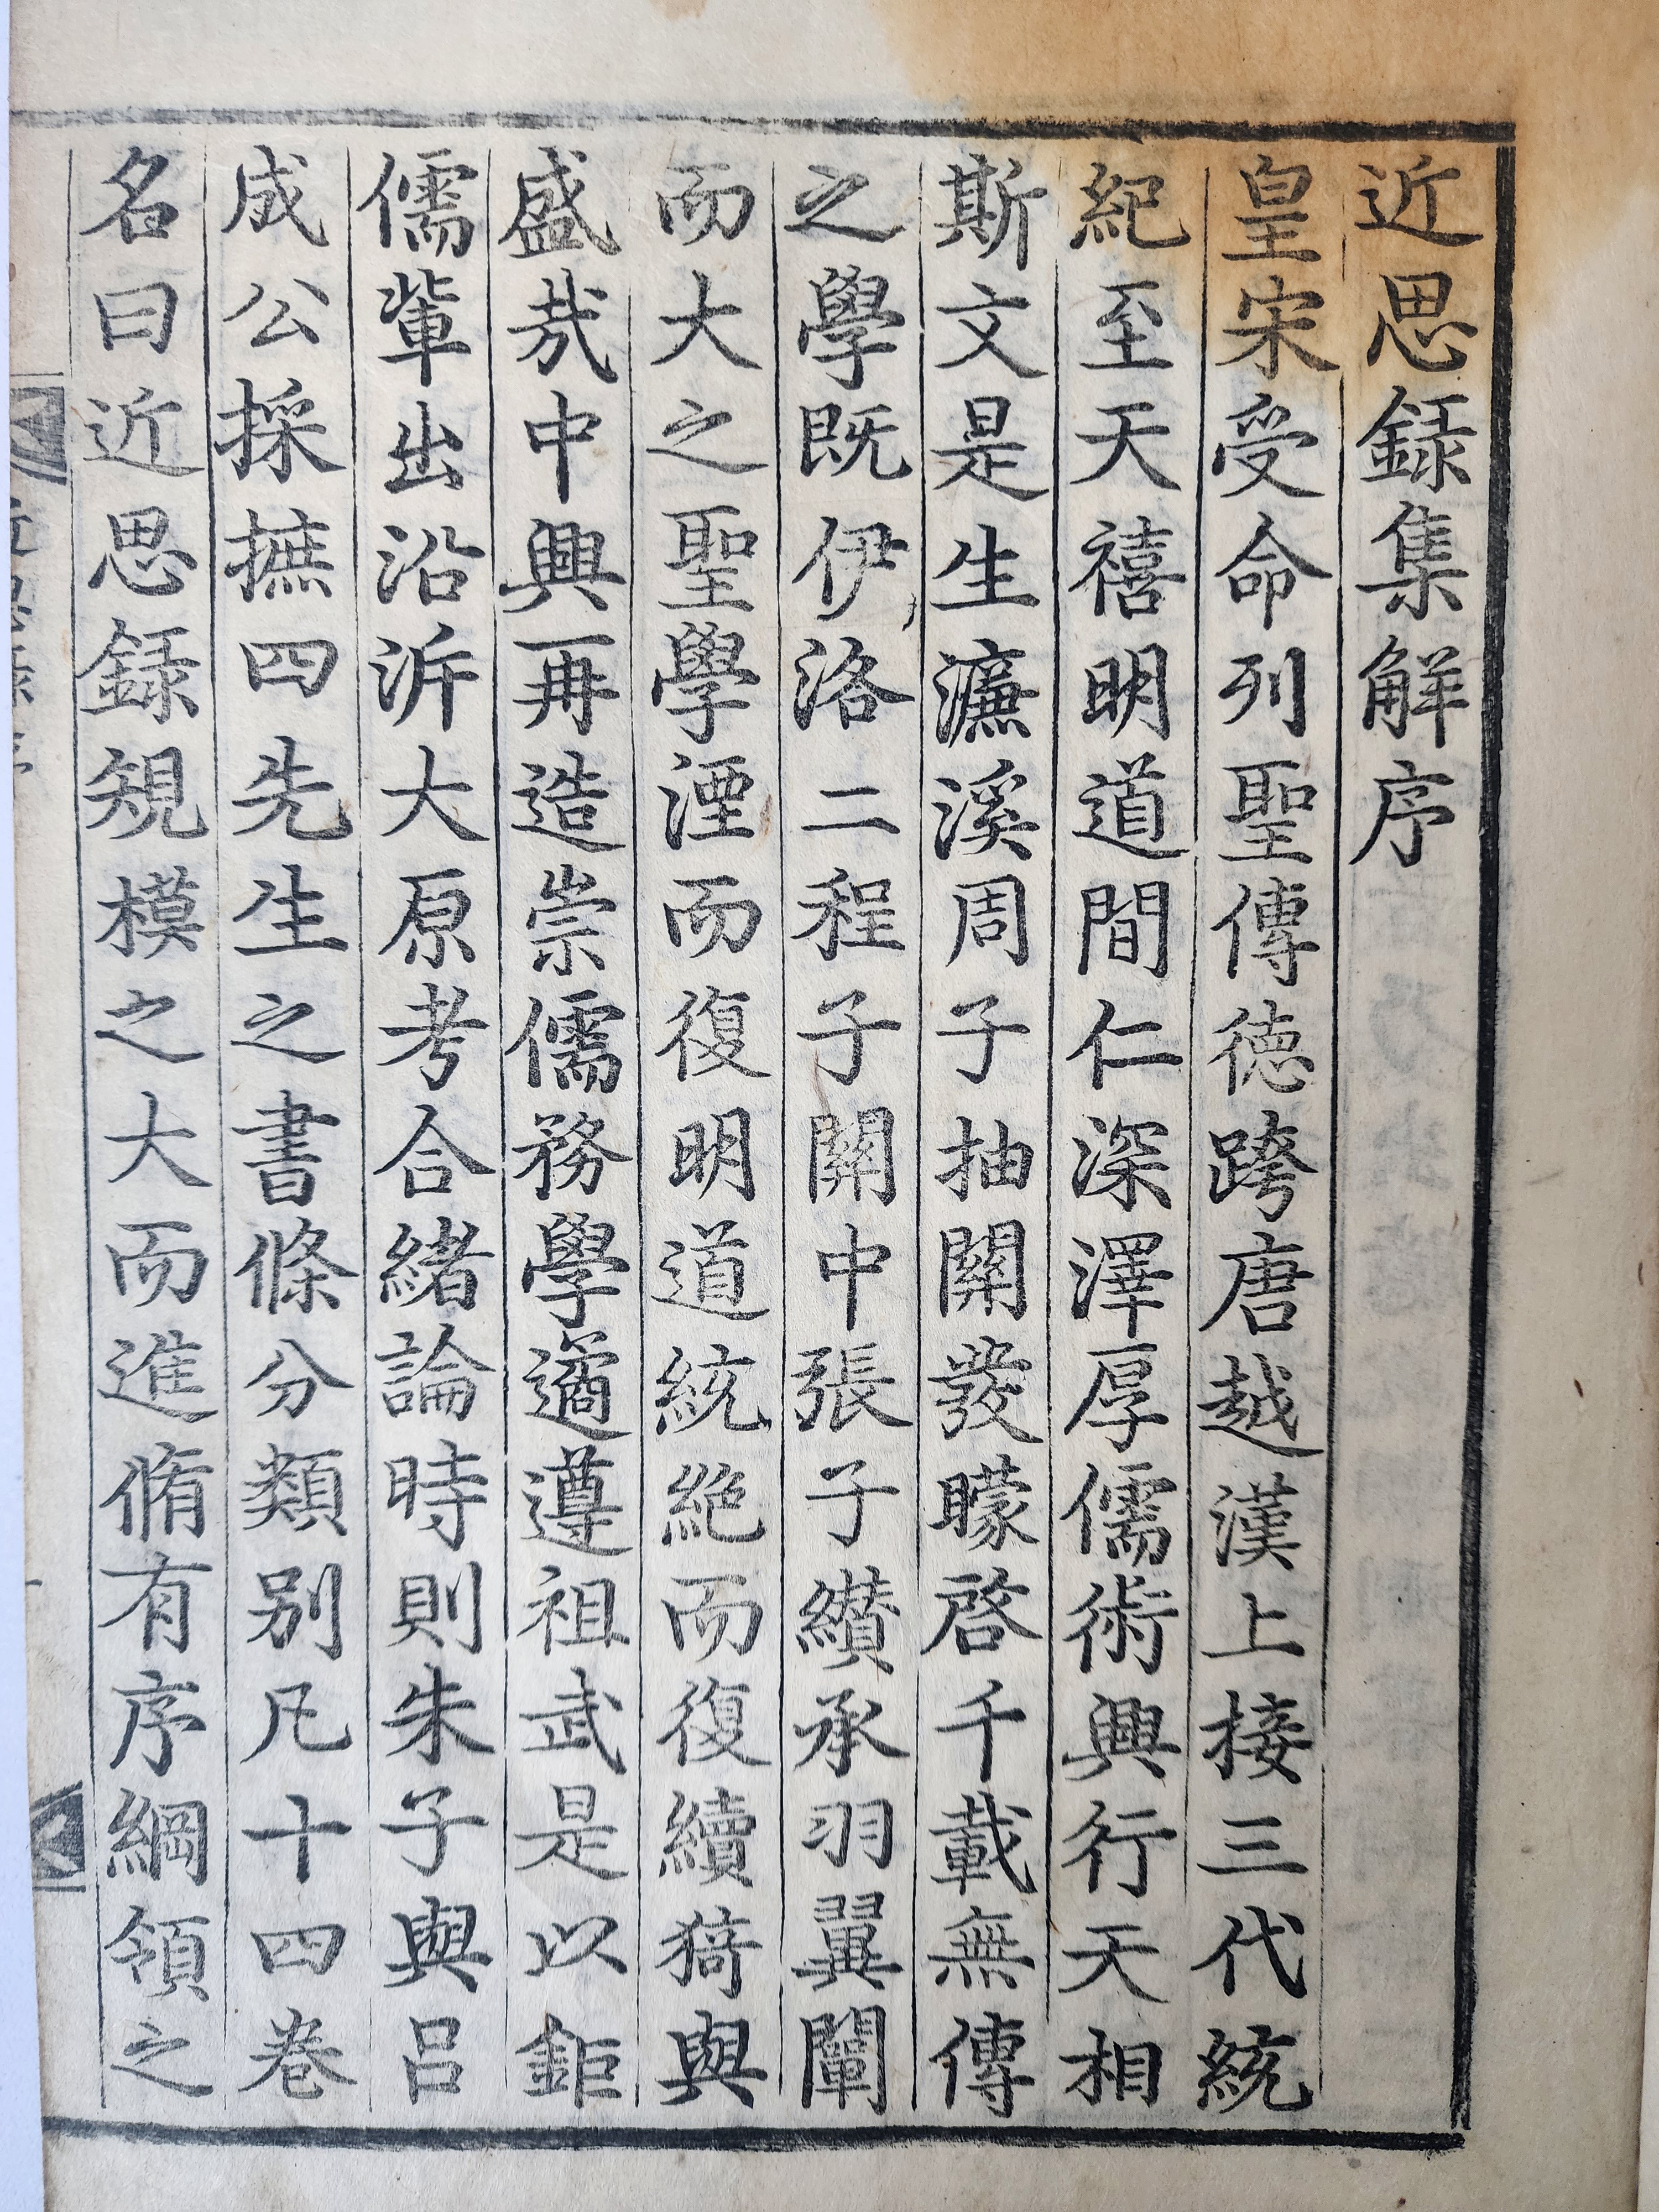 近思録集解序
皇宋受命列聖傳徳跨唐越漢上接三代統
紀至天禧明道間仁深澤厚儒術興行天相
斯文是生濂溪周子抽關發矇啓千載無傳
之學既伊洛二程子關中張子纉承羽翼闡
而大之聖學湮而復明道統絶而復續猗與
盛㢤中興再造崇儒務學遹遵祖武是以鉅
儒輩出沿泝大原考合緒論時則朱子與呂
成公採摭四先生之書條分類别凡十四卷
名曰近思録規模之大而進脩有序綱領之